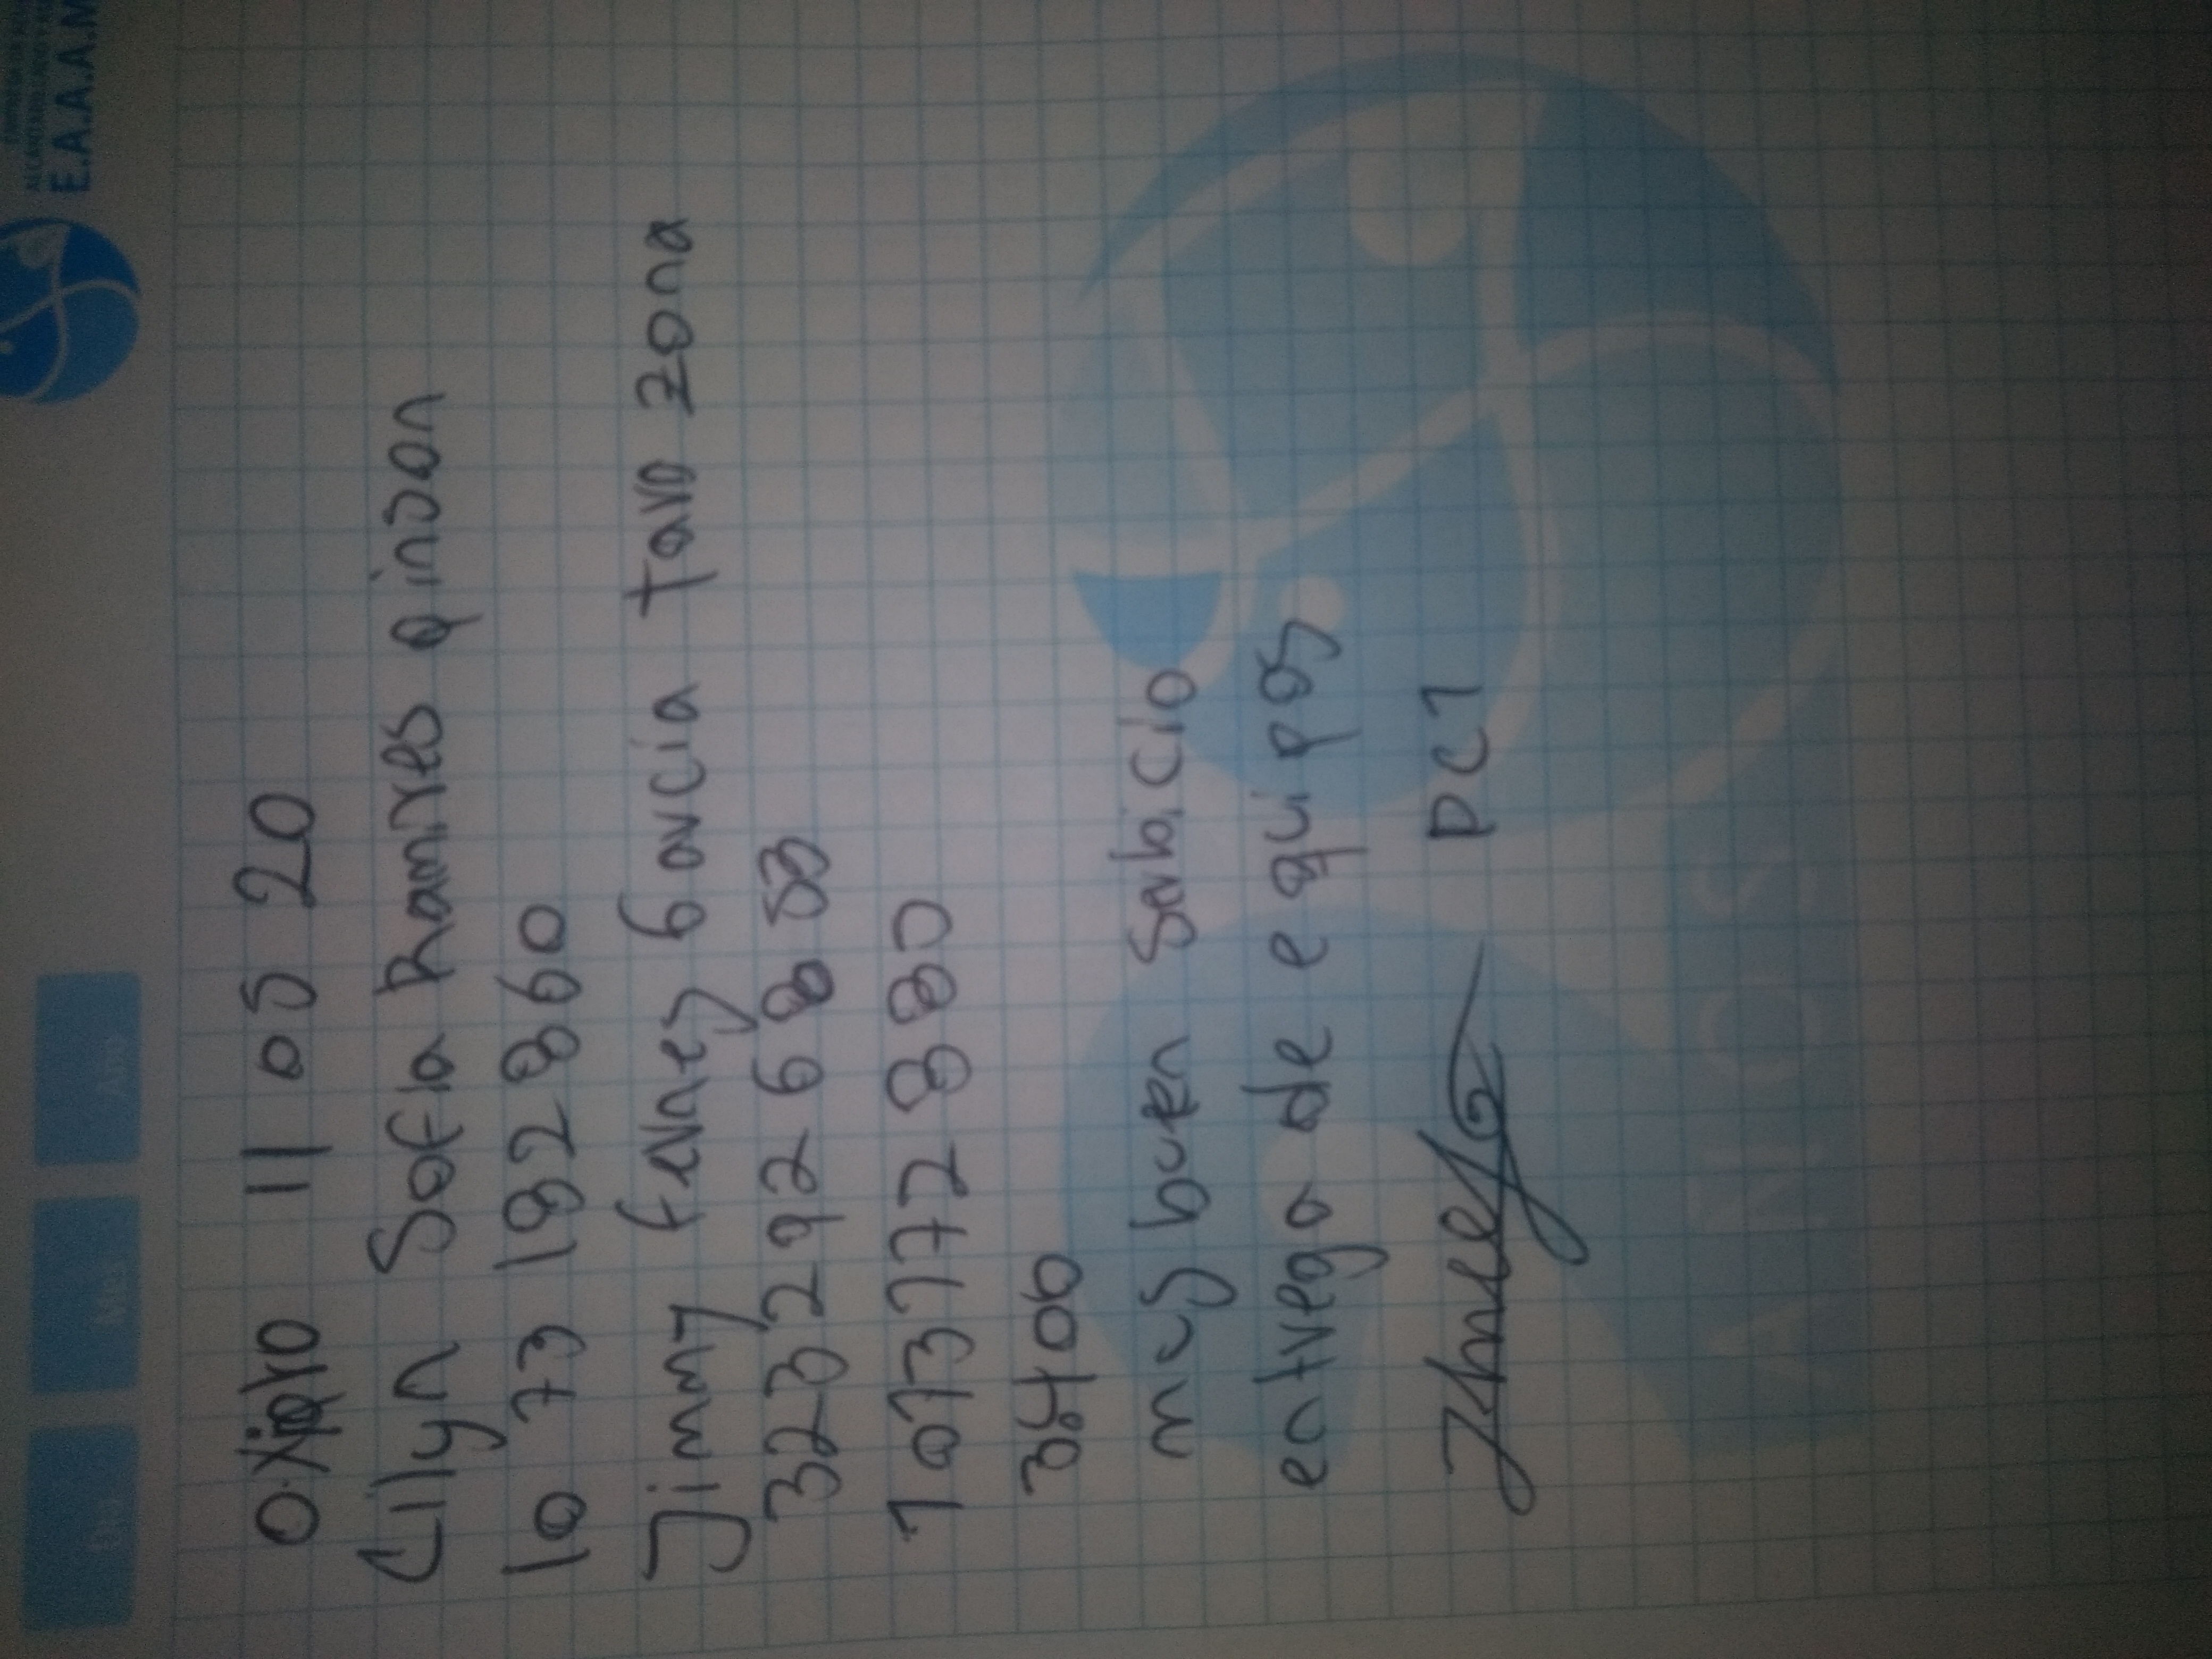 E.A.A.A.M
Día Mes Año
11 05 20
Lilyn Sofia Ramires qinson
10 73 192860
Jimmy ferney Garcia Tavo zona
323 292 68 53
1 013 172 880
3400
muy buen Serbicio
entrega de equipos
PC1